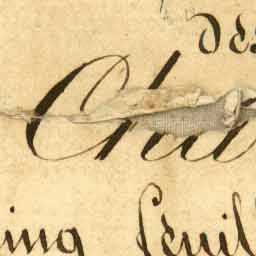 des
Cha
ing feuil